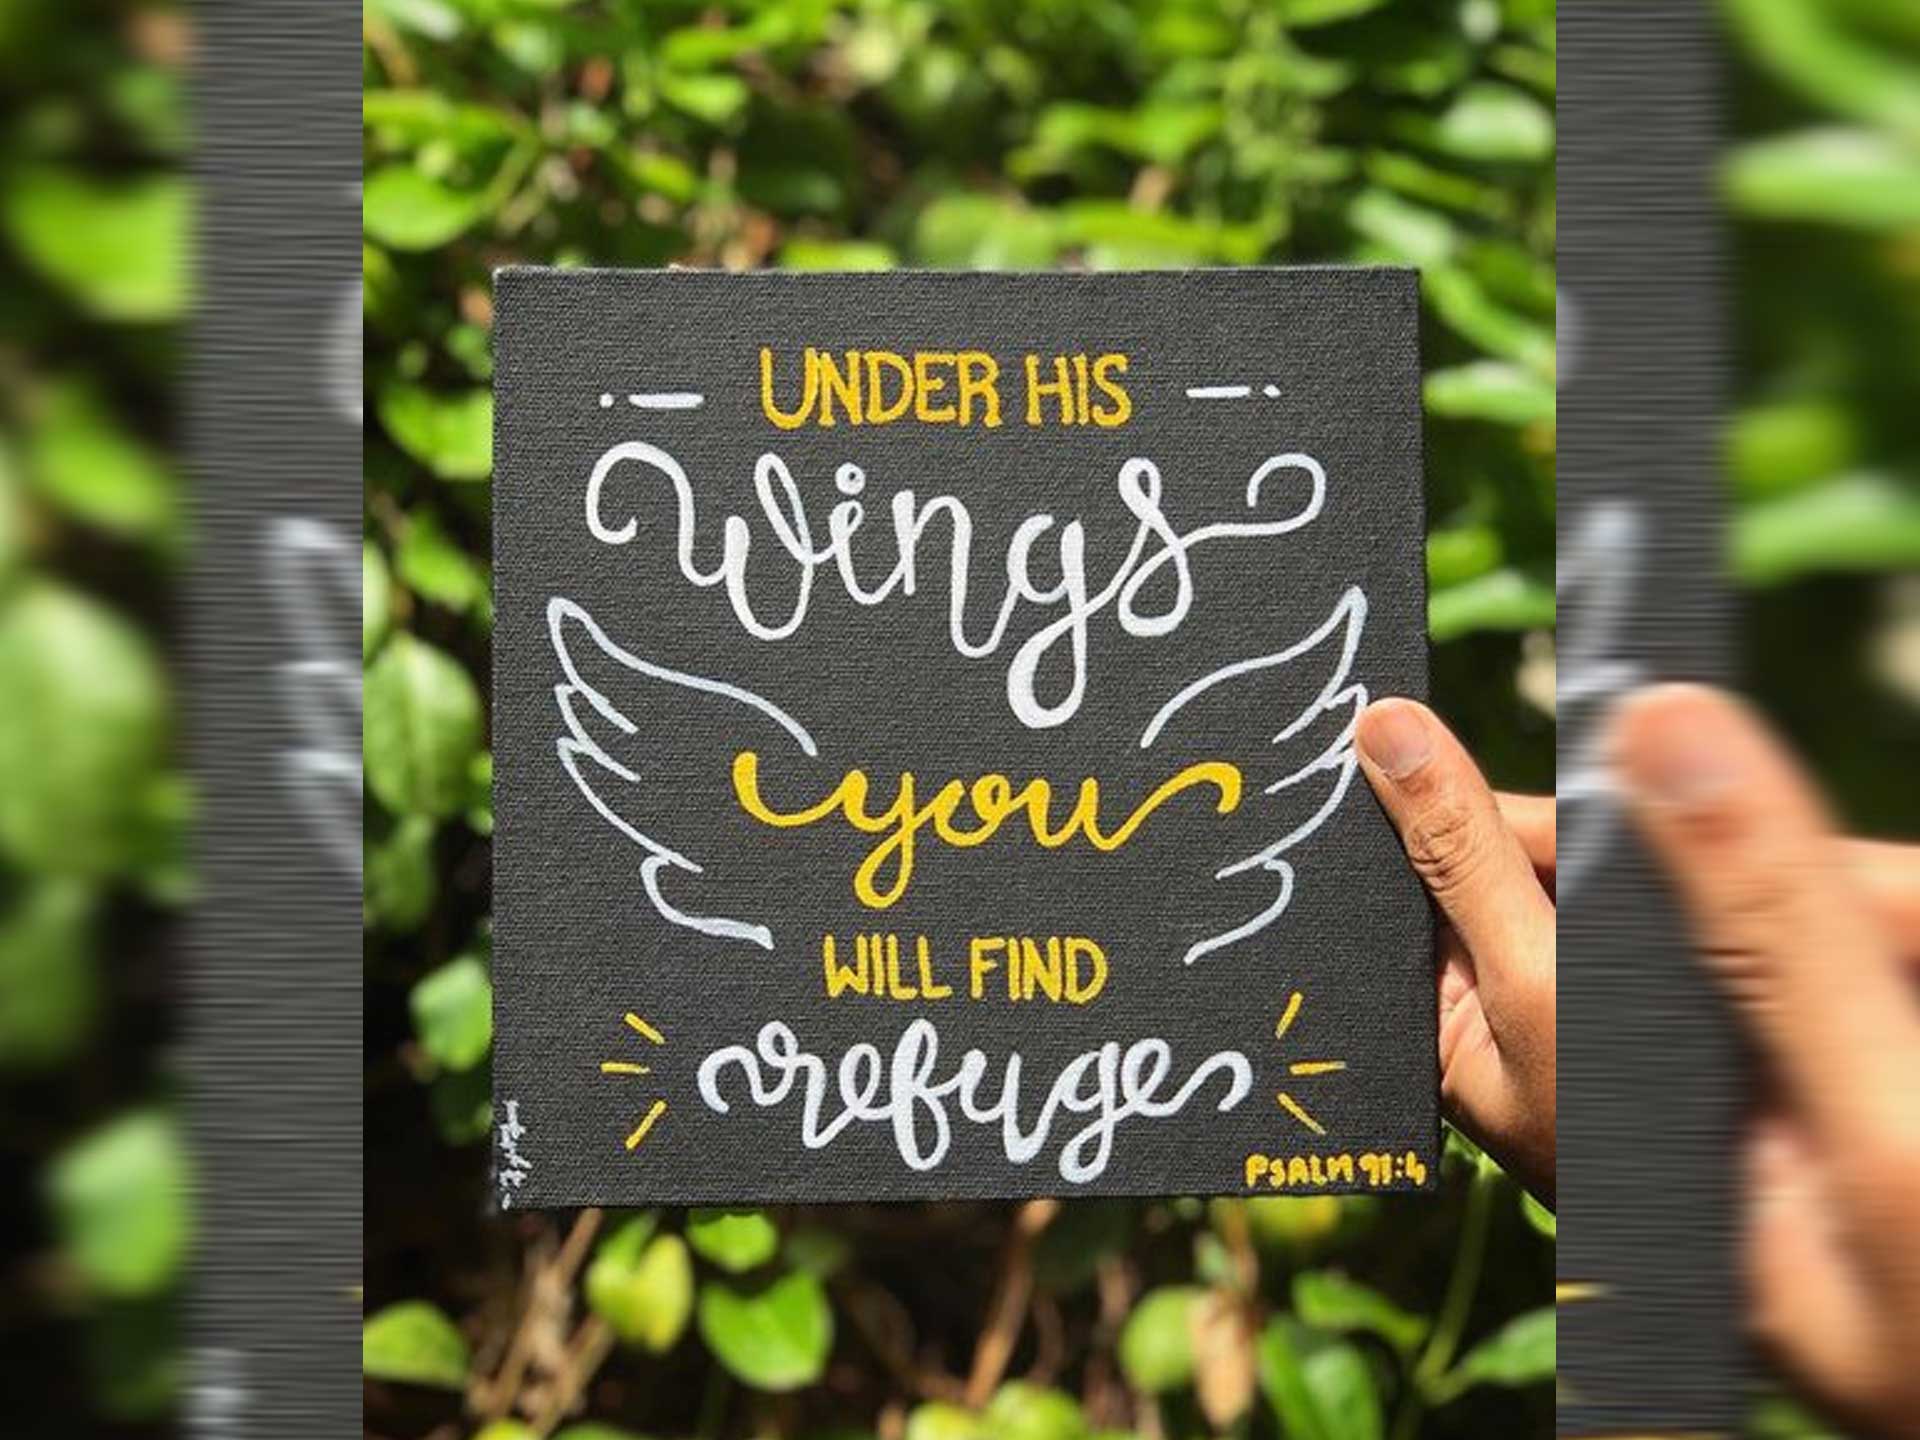 UNDER HIS
Wings
you
WILL FIND
refuge
PSALM 91:4